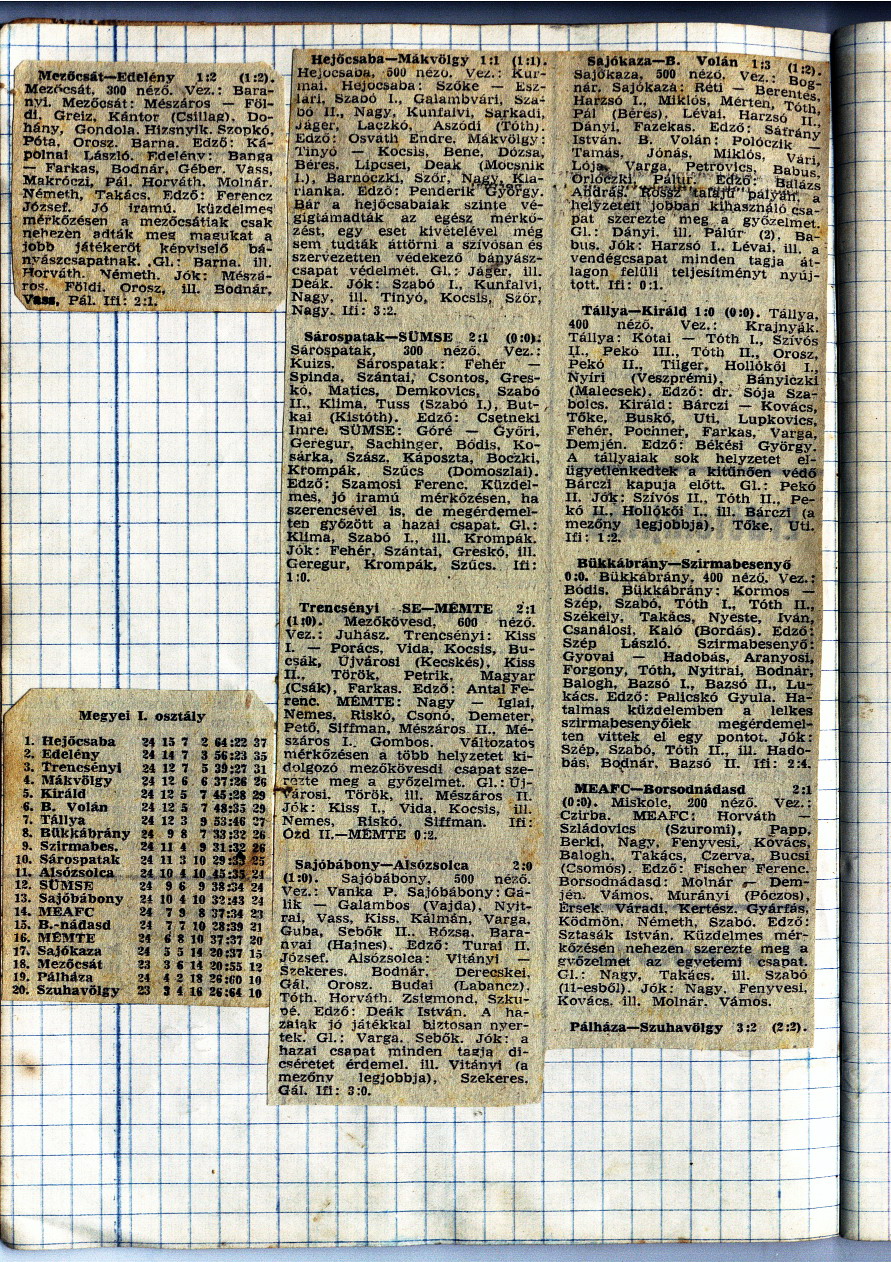 Mezőcsát—Edelény 1:2 (1:2).
Mezőcsát, 300 néző. Vez.: Bara-
nyi. Mezőcsát: Mészáros — Föl-
di, Greiz, Kántor (Csillag), Do-
hány, Gondola. Hizsnyik. Szopkó,
Póta, Orosz. Barna. Edző: Ká-
polnai László. Edelény: Banga
— Farkas, Bodnár, Géber. Vass,
Makróczi, Pál. Horváth. Molnár.
Németh, Takács. Edző: Ferencz
József. Jó iramú. küzdelmes
mérkőzésen a mezőcsátiak csak
nehezen adták meg magukat a
jobb játékerőt képviselő bá-
nyászcsapatnak. Gl.: Barna. ill.
Horváth. Németh. Jók: Mészá-
ros. Földi. Orosz, ill. Bodnár,
Vass, Pál. Ifi: 2:1.
Megyei I. osztály
1. Hejőcsaba 24 15 7 2 64:22 37
2. Edelény 24 14 7 3 56:23 35
3. Trencsényi 24 12 7 5 39:27 31
4. Mákvölgy 24 12 6 6 37:26 26
5. Királd 24 12 5 7 45:28 29
6. B. Volán 24 12 5 7 48:35 29
7. Tállya 24 12 3 9 53:46 27
8. Bükkábrány 24 9 8 7 33:32 26
9. Szirmabes. 24 11 4 9 31:32 26
10. Sárospatak 24 11 3 10 29:33 25
11. Alsózsolca 24 10 4 10 45:35 24
12. SÜMSE 24 9 6 9 38:34 24
13. Sajóbábony 24 10 4 10 32:43 24
14. MEAFC 24 7 9 8 37:34 23
15. B.-nádasd 24 7 7 10 28:39 21
16. MÉMTE 24 6 8 10 37:37 20
17. Sajókaza 24 5 5 14 20:37 15
18. Mezőcsát 23 3 6 14 20:55 12
19. Pálháza 24 4 2 18 26:60 10
20. Szuhavölgy 23 3 4 16 26:64 10
Hejőcsaba—Mákvölgy 1:1 (1:1).
Hejőcsaba, 500 néző. Vez.: Kur-
mai. Hejőcsaba: Szőke — Esz-
lári, Szabó I., Galambvári, Sza-
bó II., Nagy, Kunfalvi, Sarkadi,
Jáger, Laczkó, Aszódi (Tóth).
Edző: Osváth Endre. Mákvölgy:
Tinyó — Kocsis, Bene, Dózsa,
Béres, Lipcsei, Deák (Mocsnik
I.), Barnóczki, Szőr, Nagy, Kla-
rianka. Edző: Penderik György.
Bár a hejőcsabaiak szinte vé-
gigtámadták az egész mérkő-
zést, egy eset kivételével még
sem tudták áttörni a szívósan és
szervezetten védekező bányász-
csapat védelmét. Gl.: Jáger, ill.
Deák. Jók: Szabó I., Kunfalvi,
Nagy, ill. Tinyó, Kocsis, Szőr,
Nagy. Ifi: 3:2.
Sárospatak—SÜMSE 2:1 (0:0).
Sárospatak, 300 néző. Vez.:
Kuizs. Sárospatak: Fehér —
Spinda, Szántai, Csontos, Gres-
kó, Matics, Demkovics, Szabó
II., Klima, Tuss (Szabó I.), But-
kai (Kistóth). Edző: Csetneki
Imre. SÜMSE: Góré — Győri,
Geregur, Sachinger, Bódis, Ko-
sárka, Szász, Káposzta, Boczki,
Krompák. Szűcs (Domoszlai).
Edző: Szamosi Ferenc. Küzdel-
mes, jó iramú mérkőzésen, ha
szerencsével is, de megérdemel-
ten győzött a hazai csapat. Gl.:
Klima, Szabó I., ill. Krompák.
Jók: Fehér, Szántai, Greskó, ill.
Geregur, Krompák, Szűcs. Ifi:
1:0.
Trencsényi SE—MÉMTE 2:1
(1:0). Mezőkövesd, 600 néző.
Vez.: Juhász. Trencsényi: Kiss
I. — Porács, Vida, Kocsis, Bu-
csák, Újvárosi (Kecskés), Kiss
II., Török, Petrik, Magyar
(Csák), Farkas. Edző: Antal Fe-
renc. MÉMTE: Nagy — Iglai,
Nemes, Riskó, Csonó, Demeter,
Pető, Siffman, Mészáros II., Mé-
száros I., Gombos. Változatos
mérkőzésen a több helyzetet ki-
dolgozó mezőkövesdi csapat sze-
rezte meg a győzelmet. Gl.: Új-
városi. Török. ill. Mészáros II.
Jók: Kiss I., Vida, Kocsis, ill.
Nemes, Riskó, Siffman. Ifi:
Ózd II.—MÉMTE 0:2.
Sajóbábony—Alsózsolca 2:0
(1:0). Sajóbábony, 500 néző.
Vez.: Vanka P. Sajóbábony: Gá-
lik — Galambos (Vajda), Nyit-
rai, Vass, Kiss, Kálmán, Varga,
Guba, Sebők II.. Rózsa, Bara-
nyai (Hajnes). Edző: Turai II.
József. Alsózsolca: Vitányi —
Szekeres. Bodnár. Derecskei,
Gál, Orosz. Budai (Labancz),
Tóth. Horváth. Zsigmond, Szku-
pé. Edző: Deák István. A ha-
zaiak jó játékkal biztosan nyer-
tek. Gl.: Varga. Sebők. Jók: a
hazai csapat minden tagja di-
cséretet érdemel. ill. Vitányi (a
mezőny legjobbja), Szekeres.
Gál. Ifi: 3:0.
Sajókaza—B. Volán 1:3 (1:2).
Sajókaza, 500 néző. Vez.: Bog-
nár. Sajókaza: Réti — Berentés,
Harzsó I., Miklós, Mérten, Tóth,
Pál (Béres). Lévai, Harzsó II.,
Dányi, Fazekas. Edző: Sáfrány
István. B. Volán: Polóczik —
Tamás, Jónás, Miklós, Vári,
Lója, Varga, Petrovics, Babus.
Orlóczki. Pálúr. Edző: Balázs
András. Rossz talajú pályán, a
helyzeteit jobban kihasználó csa-
pat szerezte meg a győzelmet.
Gl.: Dányi. ill. Pálúr (2). Ba-
bus. Jók: Harzsó I., Lévai, ill. a
vendégcsapat minden tagja át-
lagon felüli teljesítményt nyúj-
tott. Ifi: 0:1.
Tállya—Királd 1:0 (0:0). Tállya,
400 néző. Vez.: Krajnyák.
Tállya: Kótai — Tóth I., Szívós
II., Pekó III., Tóth II., Orosz,
Pekó II., Tilger, Hollókői I.,
Nyíri (Veszprémi), Bányiczki
(Malecsek). Edző: dr. Sója Sza-
bolcs. Királd: Bárczi — Kovács,
Tőke, Buskó, Uti, Lupkovics,
Fehér, Pochner, Farkas, Varga,
Demjén. Edző: Békési György.
A tállyaiak sok helyzetet el-
ügyetlenkedtek a kitűnően védő
Bárczi kapuja előtt. Gl.: Pekó
II. Jók: Szívós II., Tóth II., Pe-
kó II., Hollókői I., ill. Bárczi (a
mezőny legjobbja), Tőke, Uti.
Ifi: 1:2.
Bükkábrány—Szirmabesenyő
0:0. Bükkábrány, 400 néző. Vez.:
Bódis. Bükkábrány: Kormos —
Szép, Szabó, Tóth I., Tóth II.,
Székely, Takács, Nyeste, Iván,
Csanálosi, Kaló (Bordás). Edző:
Szép László. Szirmabesenyő:
Gyóvai — Hadobás, Aranyosi,
Forgony, Tóth, Nyitrai, Bodnár,
Balogh, Bazsó I., Bazsó II., Lu-
kács. Edző: Palicskó Gyula. Ha-
talmas küzdelemben a lelkes
szirmabesenyőiek megérdemel-
ten vittek el egy pontot. Jók:
Szép, Szabó, Tóth II., ill. Hado-
bás, Bodnár, Bazsó II. Ifi: 2:4.
MEAFC—Borsodnádasd 2:1
(0:0). Miskolc, 200 néző. Vez.:
Czirba. MEAFC: Horváth —
Szládovics (Szuromi), Papp,
Berki, Nagy, Fenyvesi, Kovács,
Balogh. Takács, Czerva, Bucsi
(Csomós). Edző: Fischer Ferenc.
Borsodnádasd: Molnár — Dem-
jén. Vámos, Murányi (Póczos),
Érsek Váradi, Kertész. Gyárfás,
Ködmön, Németh, Szabó. Edző:
Sztasák István. Küzdelmes mér-
kőzésen nehezen szerezte meg a
győzelmet az egyetemi csapat.
Gl.: Nagy, Takács. ill. Szabó
(11-esből). Jók: Nagy, Fenyvesi,
Kovács. ill. Molnár. Vámos.
Pálháza—Szuhavölgy 3:2 (2:2).